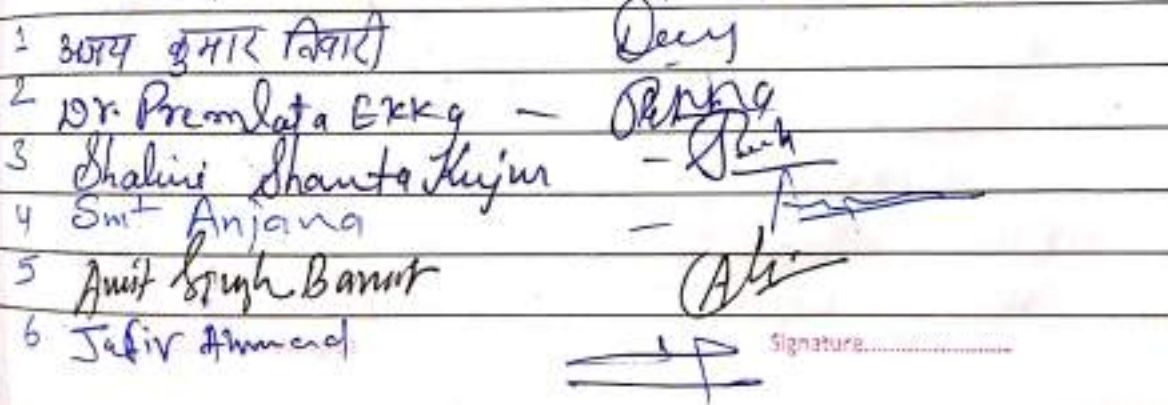 1 अजय कुमार तिवारी
2 Dr. Premlata Ekka - PEkka
3 Shalini Shanta Kujur -
4 Smt Anjana -
5 Amit Singh
6 Ahmad
Signature........................